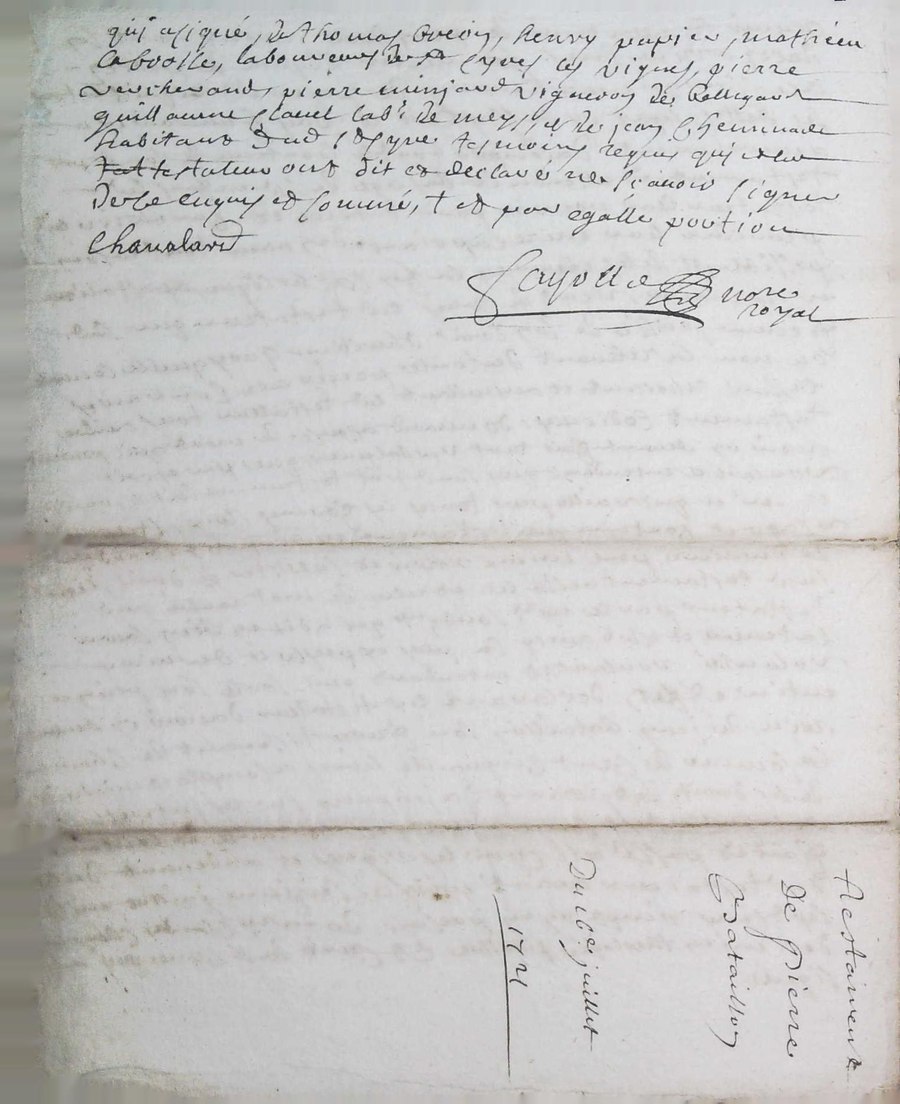 qui a signé, de thomas, henry papier, mathieu
laboureurs de St Cyre les vignes, pierre
vercherand, pierre minjard vigneron de Bellegard
guillaume Clavel lab.r de meys, et de jean Cheminade
habitans dud St Cyre tesmoins requis qui
testateur ont dit et declaré ne sçavoir signer
De ce enquis et sommé, † et par egalle portion
Chavaland
Fayolle nore
royal
Testament
De Pierre
Bataillon
Du 16e juillet
1721